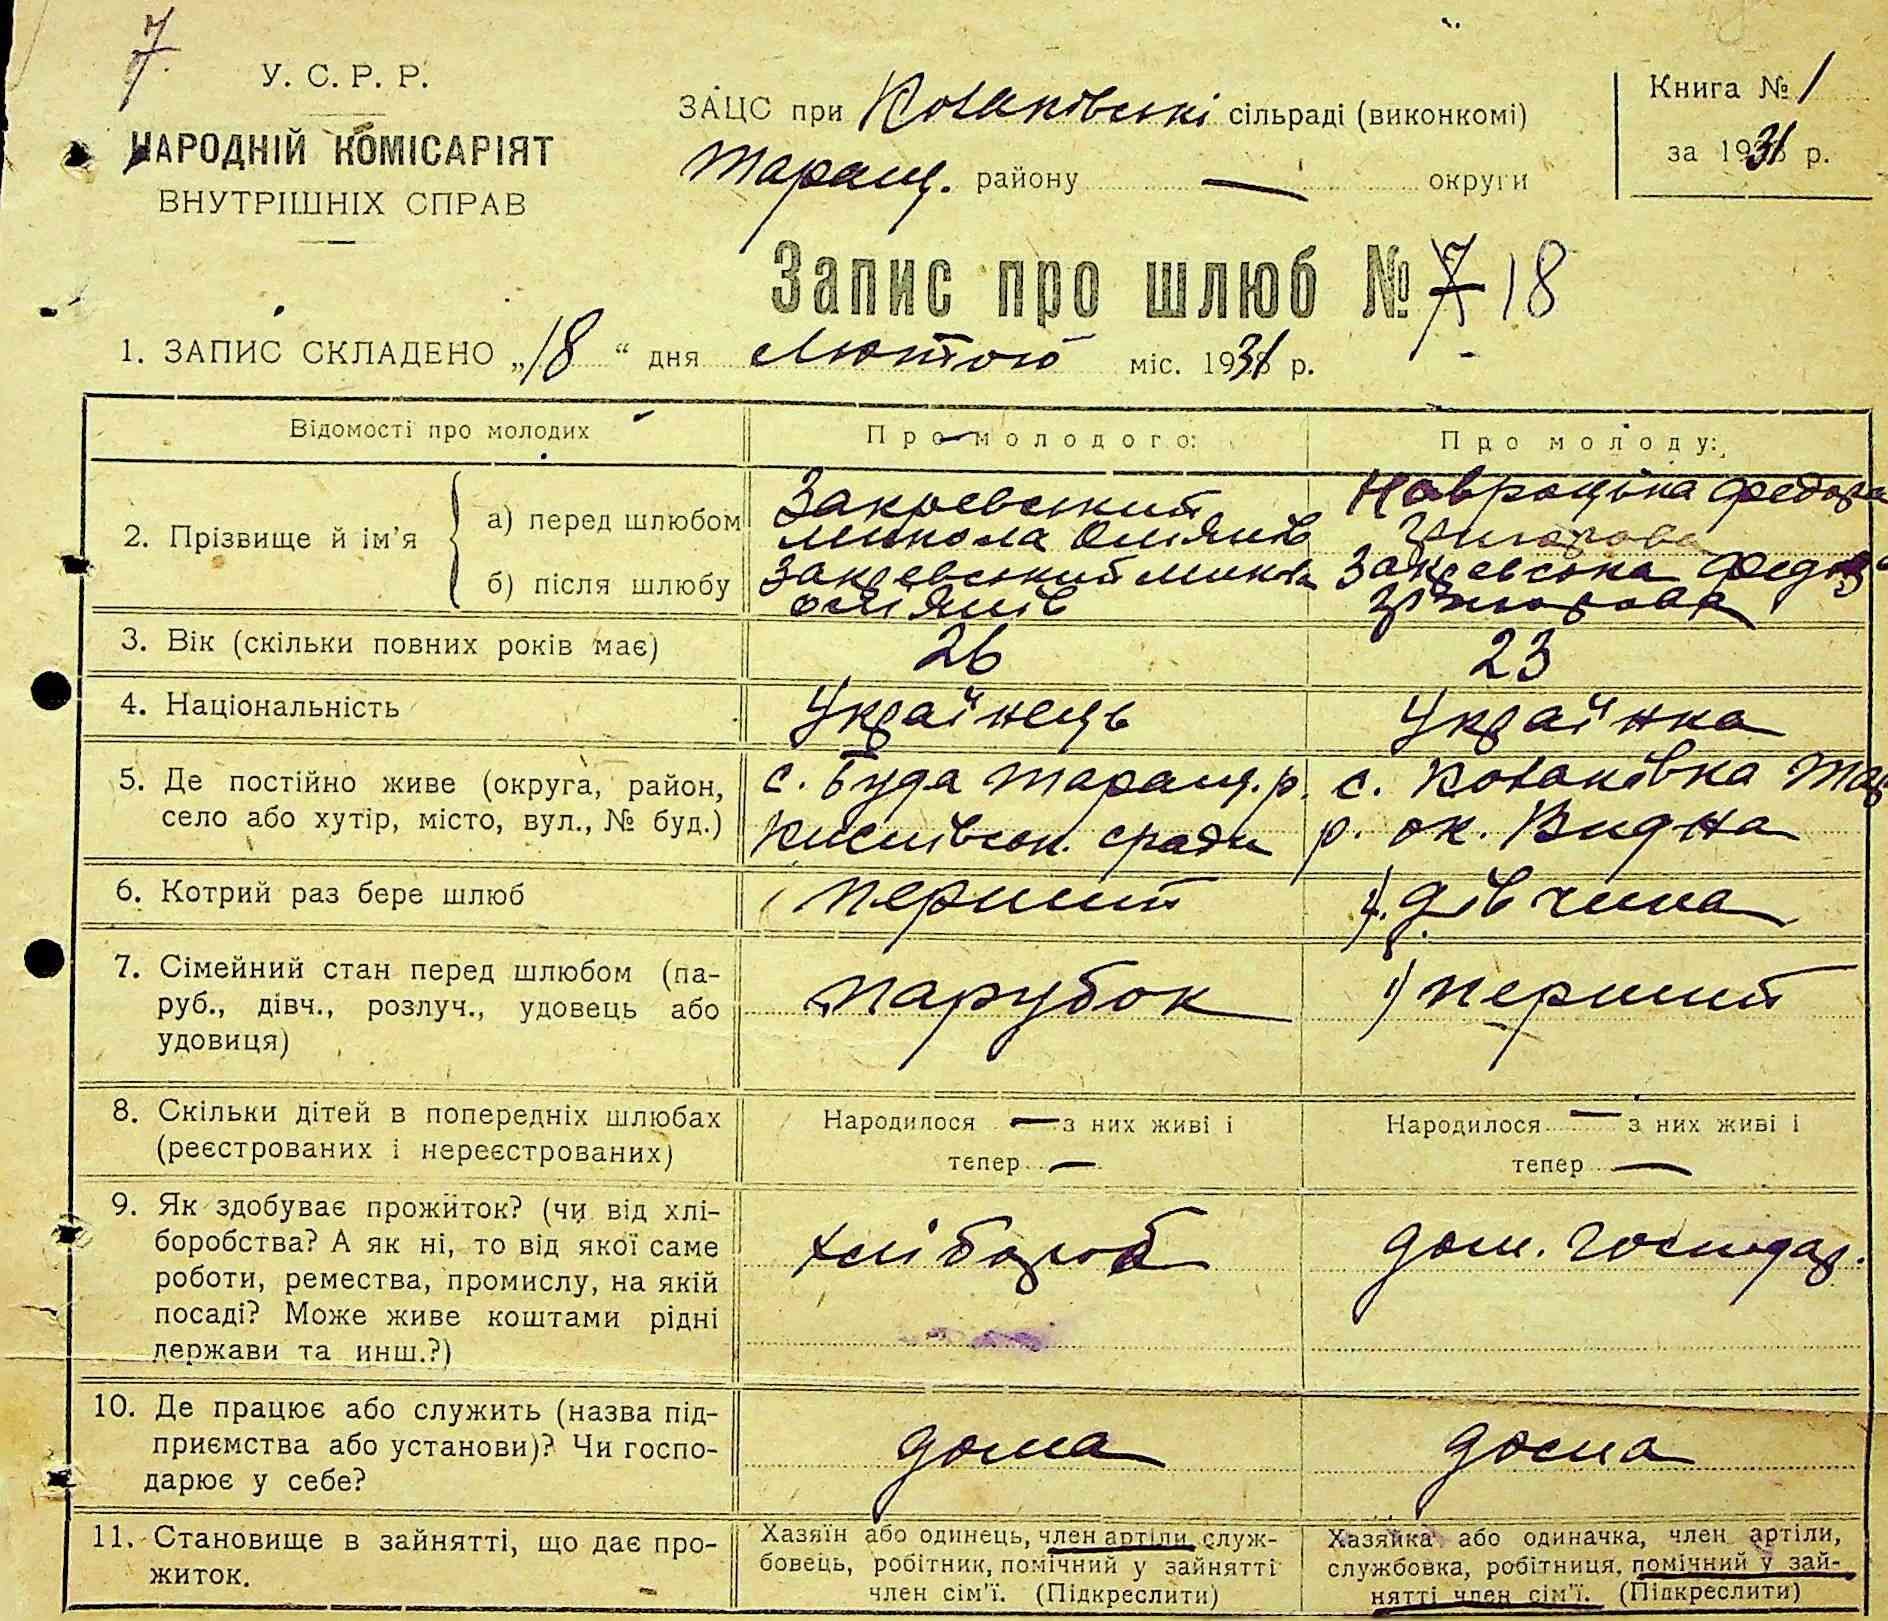 7
У. С. Р. Р.
НАРОДНІЙ КОМІСАРІЯТ
ВНУТРІШНІХ СПРАВ
ЗАЦС при Козаківські сільраді (виконкомі)
Таращ. району — округи
Книга № 1
за 1931 р.
Запис про шлюб № 7 18
1. ЗАПИС СКЛАДЕНО „18“ дня Лютого міс. 1931 р.
Відомості про молодих
Про молодого:
Про молоду:
2. Прізвище й ім'я
а) перед шлюбом
Закревський
Микола
Навроцька Федора
б) після шлюбу
Закревський Микола
Закревська Федора
3. Вік (скільки повних років має)
26
23
4. Національність
Українець
Українка
5. Де постійно живе (округа, район,
село або хутір, місто, вул., № буд.)
с. Буда Таращ. р.
с. Козаківка Тар
р. ок.
6. Котрий раз бере шлюб
перший
дівчина
7. Сімейний стан перед шлюбом (па-
руб., дівч., розлуч., удовець або
удовиця)
парубок
перший
8. Скільки дітей в попередніх шлюбах
(реєстрованих і нереєстрованих)
Народилося — з них живі і
тепер —
Народилося — з них живі і
тепер —
9. Як здобуває прожиток? (чи від хлі-
боробства? А як ні, то від якої саме
роботи, ремества, промислу, на якій
посаді? Може живе коштами рідні
держави та инш.?)
хлібороб
дом. господар.
10. Де працює або служить (назва під-
приємства або установи)? Чи госпо-
дарює у себе?
дома
дома
11. Становище в зайнятті, що дає про-
житок.
Хазяїн або одинець, член артіли, служ-
бовець, робітник, помічний у зайнятті
член сім'ї. (Підкреслити)
Хазяйка або одиначка, член артіли,
службовка, робітниця, помічний у зай-
нятті член сім'ї. (Підкреслити)